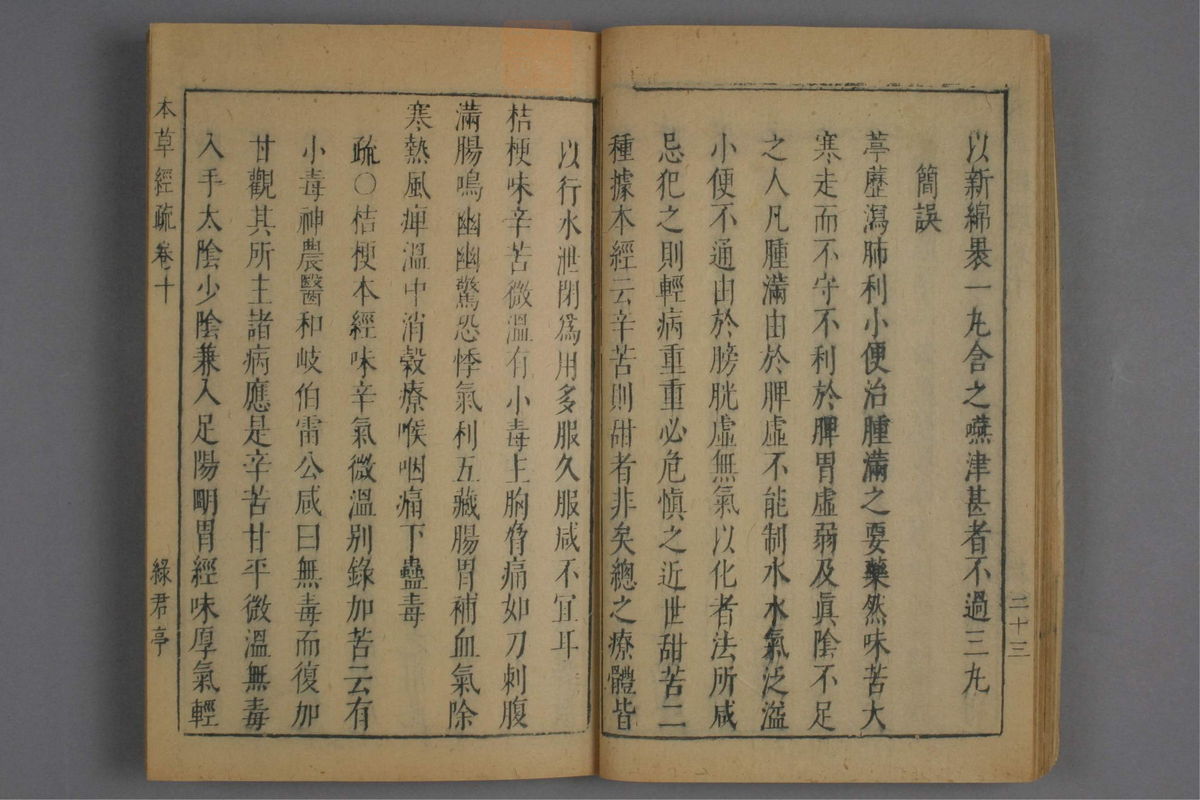 以新綿褁一丸含之嚥津甚者不過三丸
簡誤
葶藶瀉肺利小便治腫滿之要藥然味苦大
寒走而不守不利於脾胃虛弱及眞陰不足
之人凡腫滿由於脾虛不能制水水氣泛溢
小便不通由於膀胱虛無氣以化者法所咸
忌犯之則輕病重重必危愼之近世甜苦二
種據本經云辛苦則甜者非矣總之療體皆
二十三
以行水泄閉爲用多服久服咸不宜耳
桔梗味辛苦微溫有小毒主胸脅痛如刀刺腹
滿腸鳴幽幽驚恐悸氣利五藏腸胃補血氣除
寒熱風痺溫中消穀療喉咽痛下蠱毒
疏○桔梗本經味辛氣微溫別錄加苦云有
小毒神農醫和岐伯雷公咸曰無毒而復加
甘觀其所主諸病應是辛苦甘平微溫無毒
入手太陰少陰兼入足陽明胃經味厚氣輕
本草經疏卷十
綠君亭